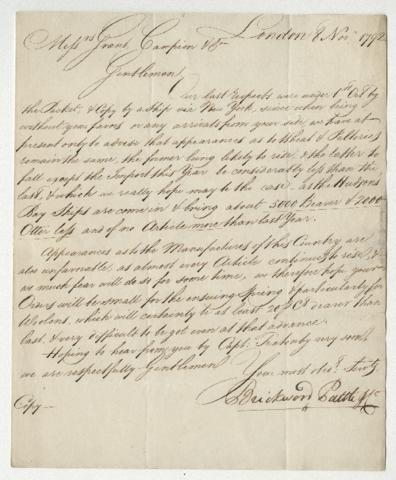 London 8 Nov. 1792
Messrs Grant, Campion & Co
Gentlemen
Our last respects were under 1st Oct by
the Packet, & Copy by a Ship via New York, since when being
without your favors or any arrivals from your side, we have at
present only to advise that appearances as to Wheat & Peltries
remain the same, the former being likely to rise, & the latter to
fall except the Import this Year be considerably less than the
last, & which we really hope may be the case, as the Hudsons
Bay Ships are come in & bring about 5000 Beaver & 2000
Otter less and of no Article more than last Year.
Appearances as to the Manufactures of this Country are
also unfavorable, as almost every Article continues to rise, &
as much fear will do so for some time, we therefore hope your
Orders will be small for the ensuing Spring & particularly for
Woolens, which will certainly be at least 20 P Ct dearer than
last, & very difficult to be got even at that advance.
Hoping to hear from you by Capt. very soon
we are respectfully Gentlemen
Your most obed. Servts
Brickwood Pattle & Co
Copy